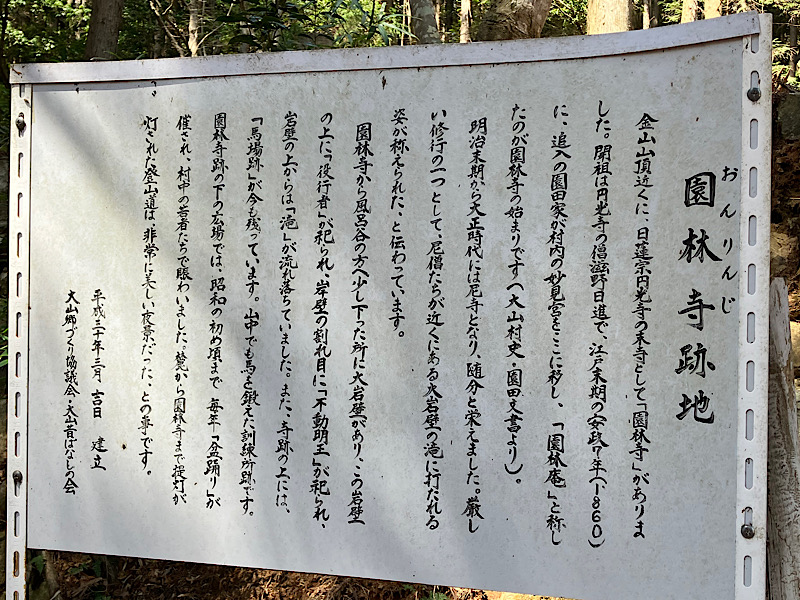 おんりんじ
園林寺跡地
金山山頂近くに、日蓮宗円光寺の末寺として「園林寺」がありま
した。開祖は円光寺の僧滋野日進で、江戸末期の安政7年(1860)
に、追入の園田家が村内の妙見宮をここに移し、「園林庵」と称し
たのが園林寺の始まりです(大山村史・園田文書より)。
明治末期から大正時代には尼寺となり、随分と栄えました。厳し
い修行の一つとして、尼僧たちが近くにある大岩壁の滝に打たれる
姿が称えられた、と伝わっています。
園林寺から風呂谷の方へ少し下った所に大岩壁があり、この岩壁
の上に「役行者」が祀られ、岩壁の割れ目に「不動明王」が祀られ、
岩壁の上からは「滝」が流れ落ちていました。また、寺跡の上には、
「馬場跡」が今も残っています。山中でも馬を鍛えた訓練所跡です。
園林寺跡の下の広場では、昭和の初め頃まで毎年「盆踊り」が
催され、村中の若者たちで賑わいました。麓から園林寺まで提灯が
灯された登山道は非常に美しい夜景だった、との事です。
平成三十年三月吉日 建立
大山郷づくり協議会・大山昔ばなしの会